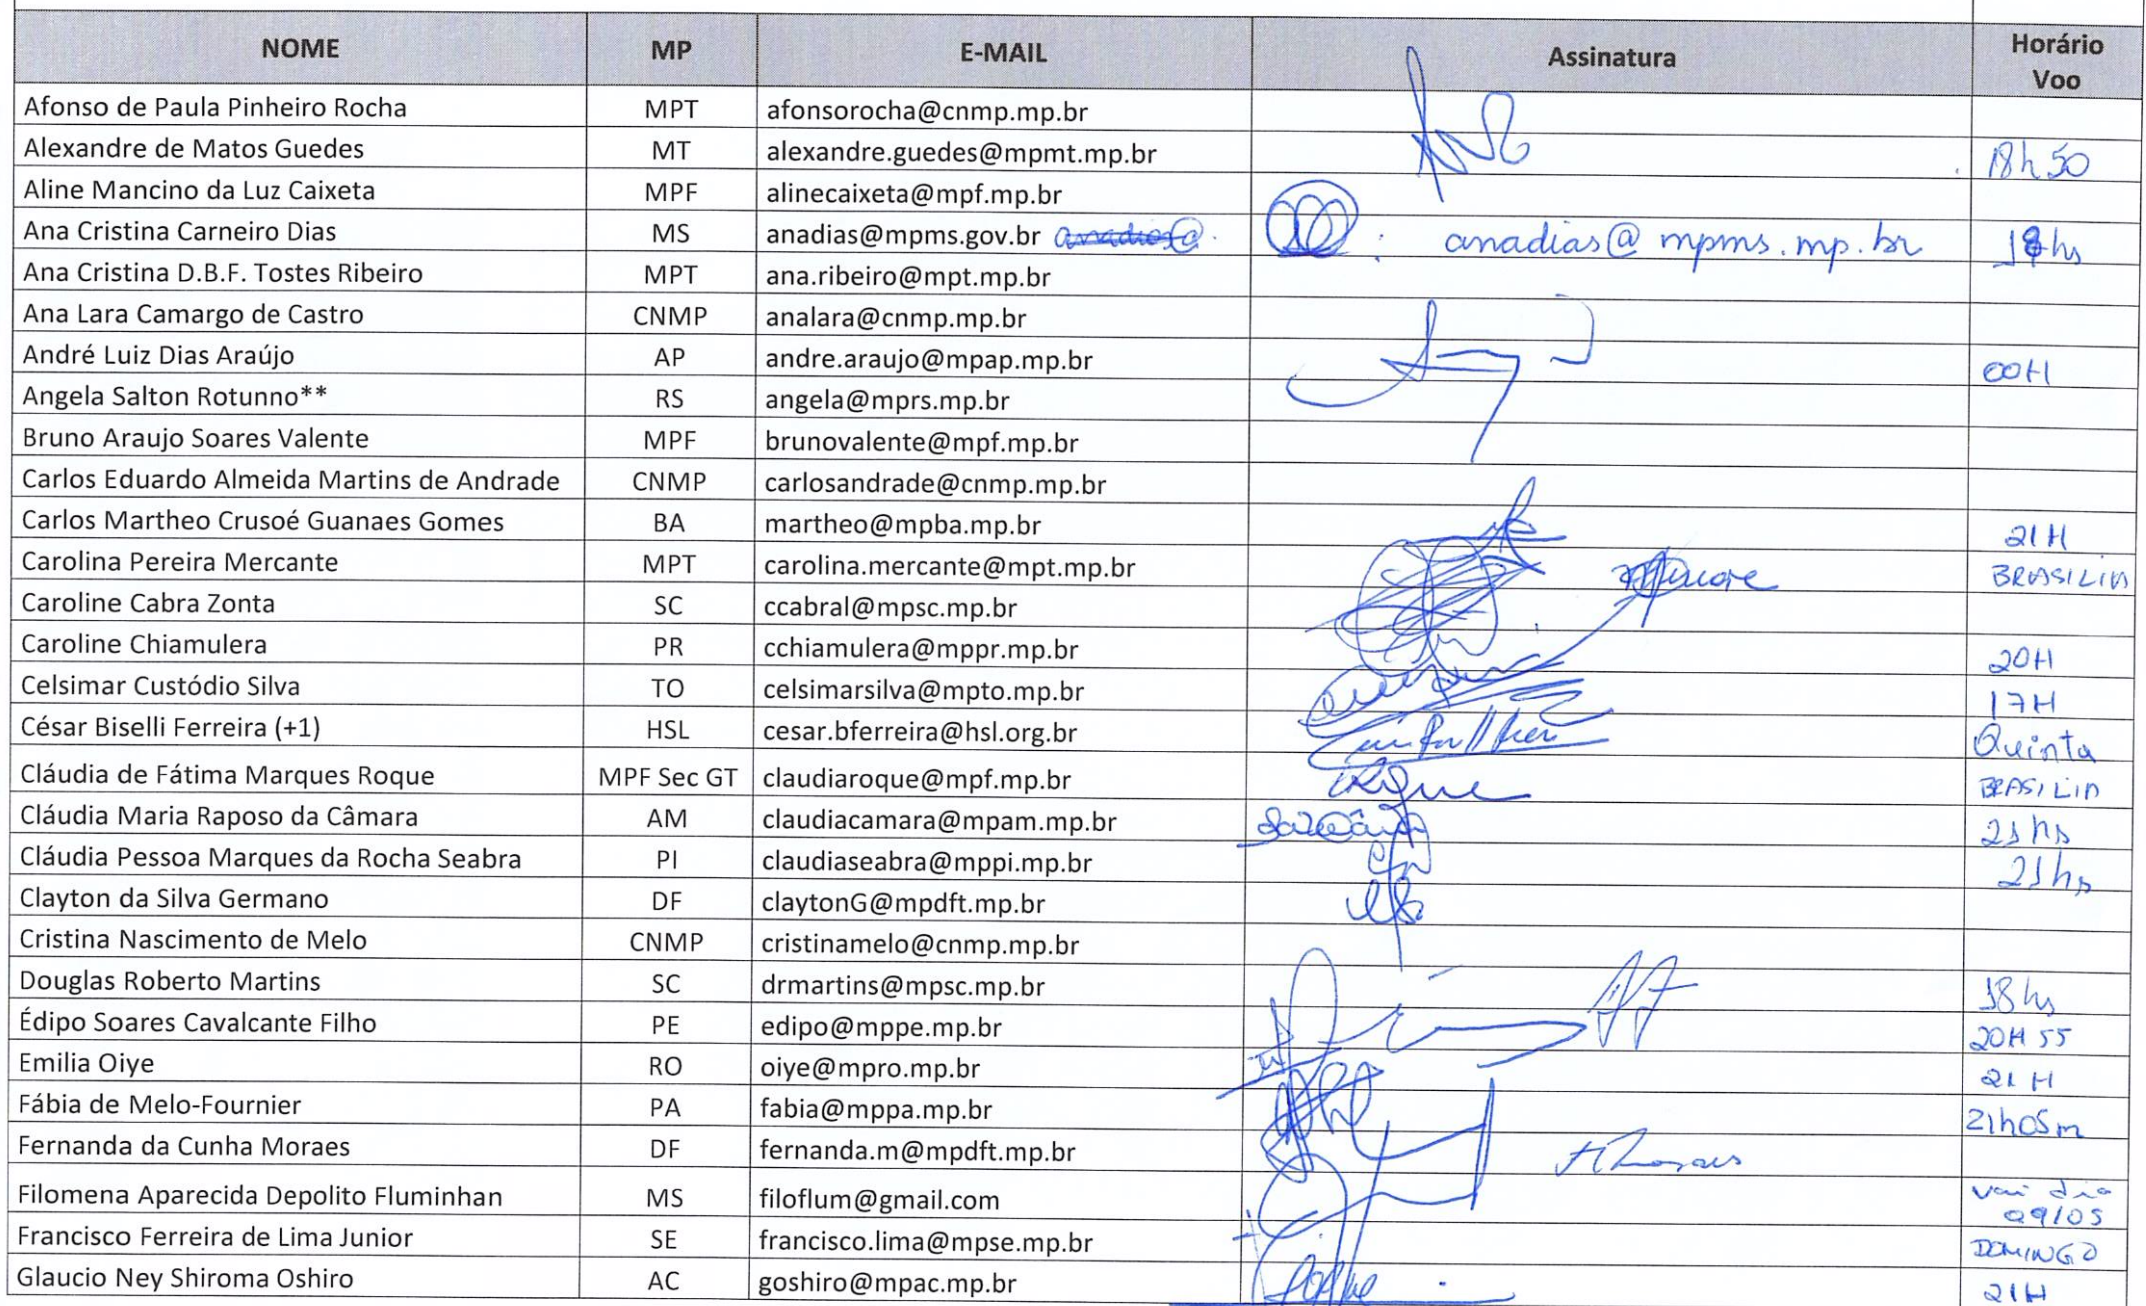 NOME MP E-MAIL Assinatura Horário Voo
Afonso de Paula Pinheiro Rocha MPT afonsorocha@cnmp.mp.br
Alexandre de Matos Guedes MT alexandre.guedes@mpmt.mp.br 18h50
Aline Mancino da Luz Caixeta MPF alinecaixeta@mpf.mp.br
Ana Cristina Carneiro Dias MS anadias@mpms.gov.br anadias@mpms.mp.br
Ana Cristina D.B.F. Tostes Ribeiro MPT ana.ribeiro@mpt.mp.br
Ana Lara Camargo de Castro CNMP analara@cnmp.mp.br
André Luiz Dias Araújo AP andre.araujo@mpap.mp.br 00H
Angela Salton Rotunno** RS angela@mprs.mp.br
Bruno Araujo Soares Valente MPF brunovalente@mpf.mp.br
Carlos Eduardo Almeida Martins de Andrade CNMP carlosandrade@cnmp.mp.br
Carlos Martheo Crusoé Guanaes Gomes BA martheo@mpba.mp.br 21H
Carolina Pereira Mercante MPT carolina.mercante@mpt.mp.br BRASILIA
Caroline Cabra Zonta SC ccabral@mpsc.mp.br
Caroline Chiamulera PR cchiamulera@mppr.mp.br 20H
Celsimar Custódio Silva TO celsimarsilva@mpto.mp.br 17H
César Biselli Ferreira (+1) HSL cesar.bferreira@hsl.org.br Quinta
Cláudia de Fátima Marques Roque MPF Sec GT claudiaroque@mpf.mp.br Roque BRASILIA
Cláudia Maria Raposo da Câmara AM claudiacamara@mpam.mp.br 21hs
Cláudia Pessoa Marques da Rocha Seabra PI claudiaseabra@mppi.mp.br 21hs
Clayton da Silva Germano DF claytonG@mpdft.mp.br
Cristina Nascimento de Melo CNMP cristinamelo@cnmp.mp.br
Douglas Roberto Martins SC drmartins@mpsc.mp.br 18hs
Édipo Soares Cavalcante Filho PE edipo@mppe.mp.br 20H55
Emilia Oiye RO oiye@mpro.mp.br 21H
Fábia de Melo-Fournier PA fabia@mppa.mp.br 21h05m
Fernanda da Cunha Moraes DF fernanda.m@mpdft.mp.br
Filomena Aparecida Depolito Fluminhan MS filoflum@gmail.com vai dia 09/05
Francisco Ferreira de Lima Junior SE francisco.lima@mpse.mp.br DOMINGO
Glaucio Ney Shiroma Oshiro AC goshiro@mpac.mp.br 21H